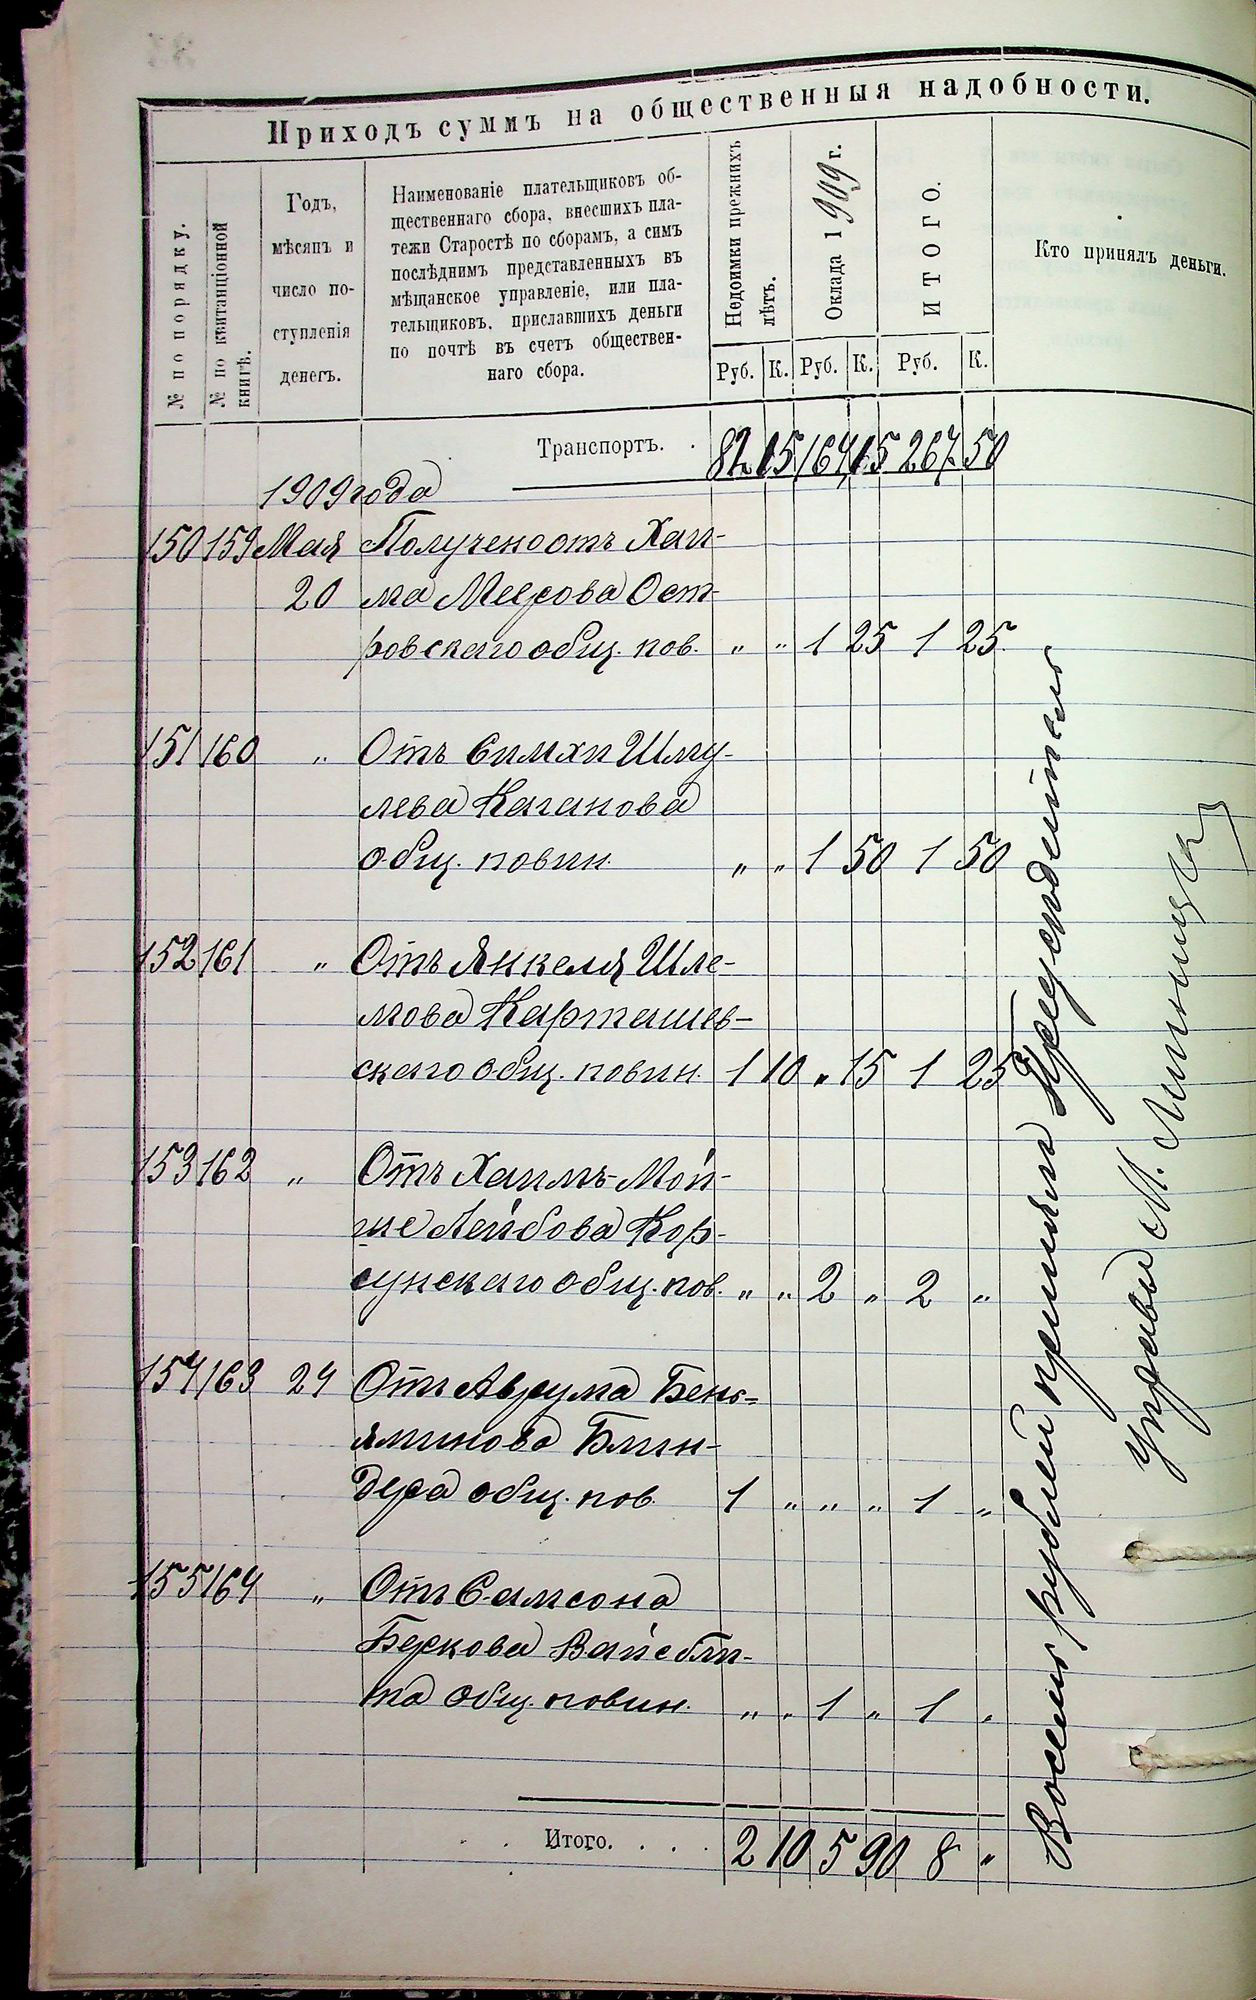 Приходъ суммъ на общественныя надобности.
№ по порядку.
№ по квитанціонной
книгѣ.
Годъ,
мѣсяцъ и
число по-
ступленія
денегъ.
Наименованіе плательщиковъ об-
щественнаго сбора, внесшихъ пла-
тежи Старостѣ по сборамъ, а симъ
послѣднимъ представленныхъ въ
мѣщанское управленіе, или пла-
тельщиковъ, приславшихъ деньги
по почтѣ въ счетъ обществен-
наго сбора.
Недоимки прежнихъ
лѣтъ.
Оклада 1909 г.
ИТОГО.
Кто принялъ деньги.
Руб. К. Руб. К. Руб. К.
Транспортъ. 82 15 164 15 267 50
1909 года
150 159 Мая Получено отъ Хаи-
20 ма Меерова Ост-
ровскаго общ. пов. „ „ 1 25 1 25
151 160 „ Отъ Симхи Шму-
лева Каганова
общ. повин. „ „ 1 50 1 50
152 161 „ Отъ Янкеля Шле-
мова Карташев-
скаго общ. повин. 1 10 „ 15 1 25
153 162 „ Отъ Хаимъ-Мой-
ше Лейбова Кор-
сунскаго общ. пов. „ „ 2 „ 2 „
154 163 24 Отъ Аврума Бень-
яминова Блин-
дера общ. пов. 1 „ „ „ 1 „
155 164 „ Отъ Самсона
Беркова Вайсбли-
та общ. повин. „ „ 1 „ 1 „
Итого. 2 10 5 90 8 „
Восемь рублей принялъ Предсѣдатель
Управы М.